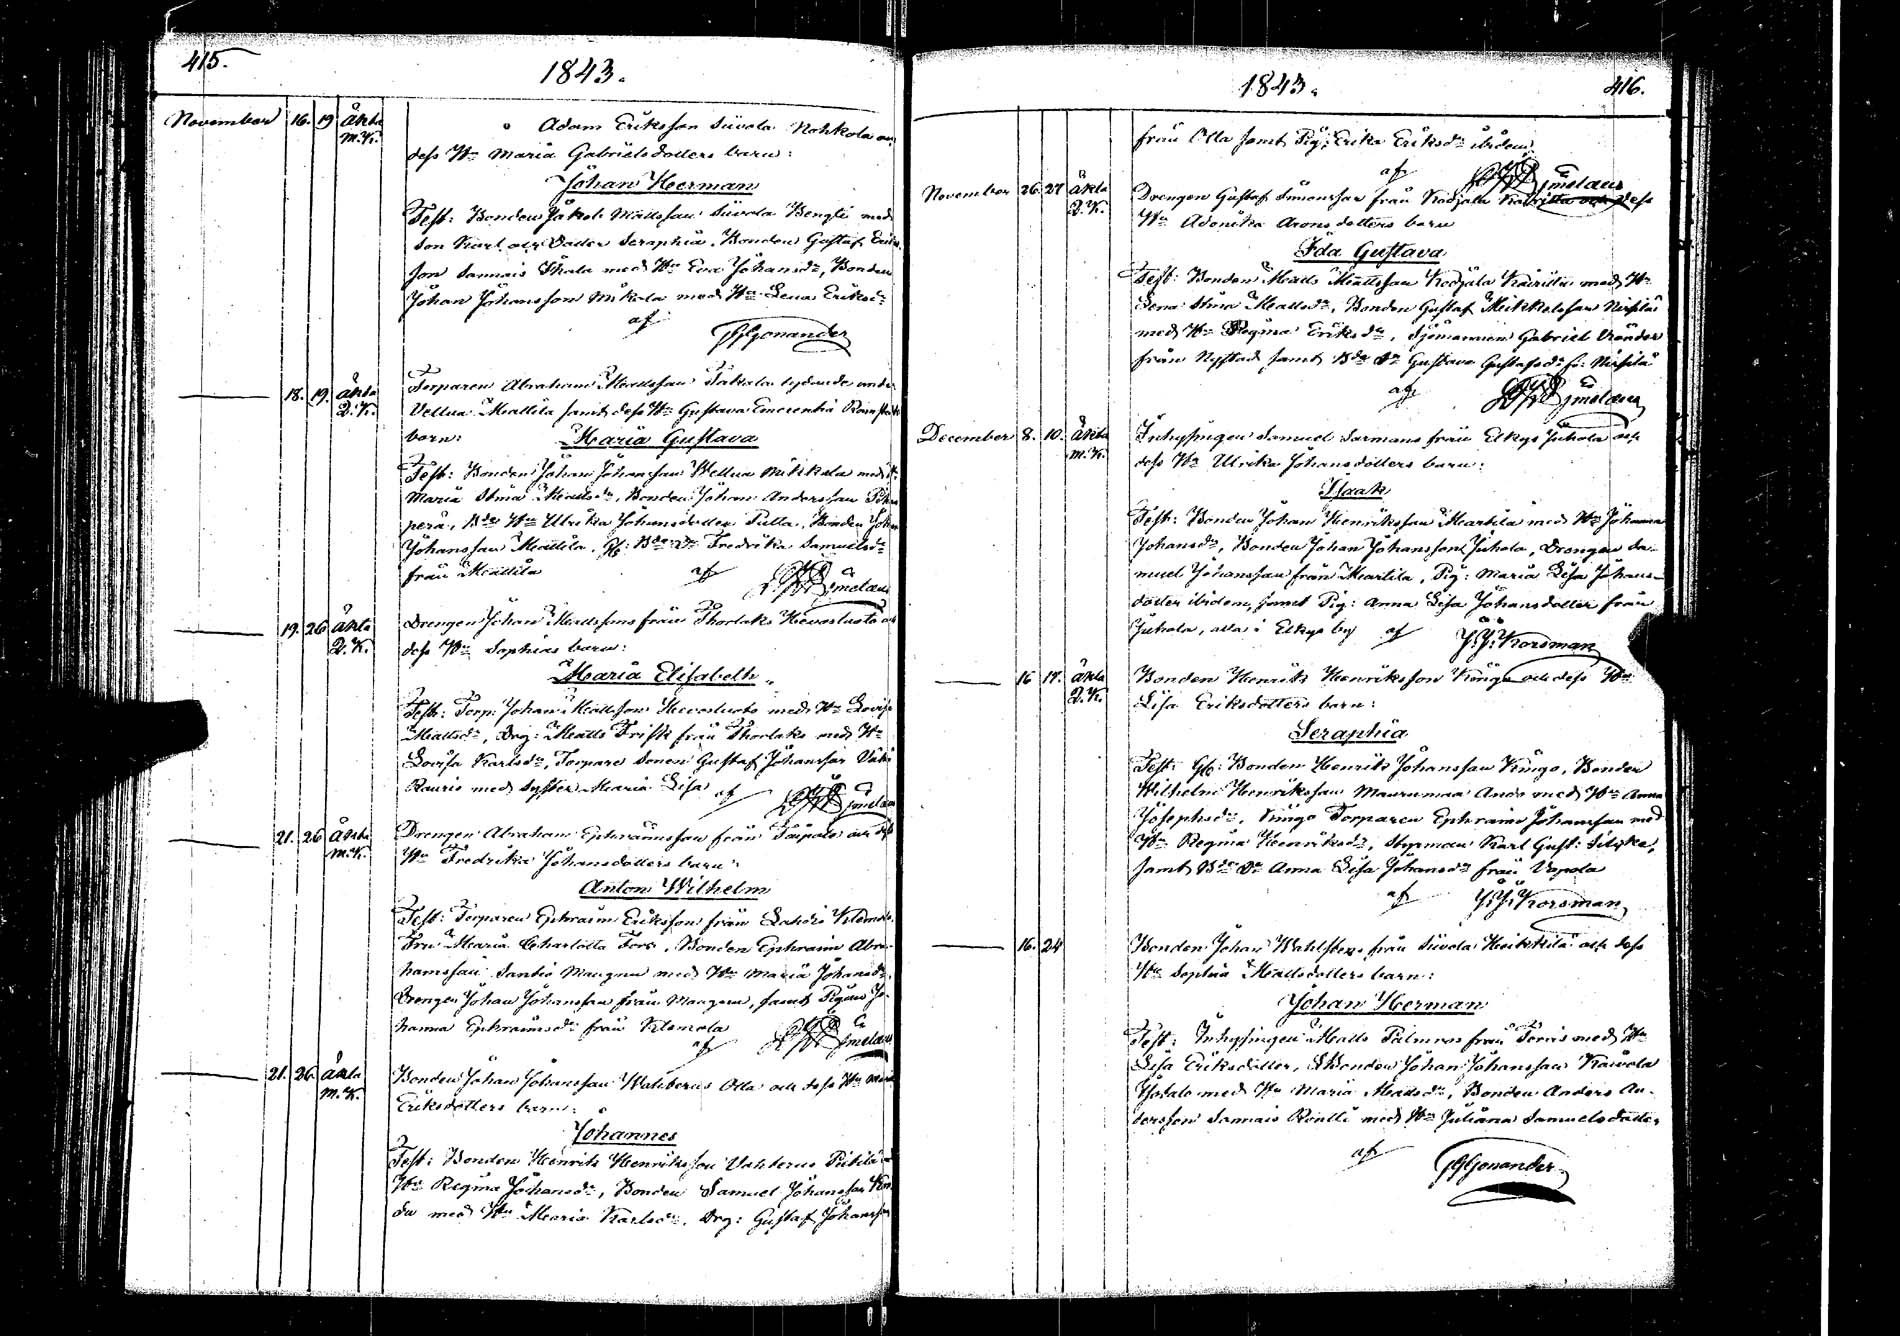 415.
1843.
November 16. 19 äkta Adam Eriksson Suvola Nohkola och
m.K. dess H:u Maria Gabrielsdotters barn:
Johan Herman
Test: Bonden Jakob Mattsson Suvola Bengti med
Son Karl och Dotter Seraphia, Bonden Gustaf Eriks-
son Sannais Skala med H:u Eva Johansd:r, Bonden
Johan Johansson Mikola med H:u Lena Eriksd:r
af
Gonander
18. 19. äkta Torparen Abraham Mattsson lydande under
Q.K. Vellua Mattila samt dess H:u Gustava Emerentia
barn: Maria Gustava
Test: Bonden Johan Johansson Wellua Mikkola med H:u
Maria Stina Mattsd:r, Bonden Johan Andersson
perä, Bde H:u Ulrika Johansdotter Pulla, Bonden Johan
Johansson Mattila, Gl: Bde D:r Fredrika Samuelsd:r
från Mattila af
19. 26 äkta Drengen Johan Mattssons från Thorlaks Hevosluoto och
Q.K. dess H:u Sophias barn:
Maria Elisabeth
Test: Torp: Johan Mattsson Hevosluoto med H:u Lovisa
Mattsd:r, Drg: Matts Frisk från Thorlaks med H:u
Lovisa Karlsd:r, Torpare Sonen Gustaf Johansson
Rauvis med Syster Maria Lisa af
21. 26 äkta Drengen Abraham Ephraimsson från Taipale och dess
m.K. H:u Fredrika Johansdotters barn:
Anton Wilhelm
Test: Torparen Ephraim Eriksson från Klemola,
Fru Maria Charlotta Fors, Bonden Ephraim Abra-
hamsson Santio Maugnu med H:u Maria Johansd:r
Drengen Johan Johansson från Maugnu, samt Pigan Jo-
hanna Ephraimsd:r från Klemola
af
21. 26. äkta Bonden Johan Johansson Wahberus Olla och dess H:u Maria
m.K. Eriksdotters barn:
Johannes
Test: Bonden Henrik Henriksson Vahterus Pihlä
H:u Regina Johansd:r, Bonden Samuel Johansson
du med H:u Maria Karlsd:r, Drg: Gustaf Johansson
1843.
416.
från Olla samt Pig: Erika Eriksd:r ibidem
af
November 26. 27 äkta Drengen Gustaf Simonsson från Kodjala dess
Q.K. H:u Adonika Aronsdotters barn
Ida Gustava
Test: Bonden Matts Mattsson Kodjala Kairitta med H:u
Lena Stina Mattsd:r, Bonden Gustaf Mikkelsson Nirhilä
med H:u Regina Eriksd:r, Sjömannen Gabriel
från Nystad samt Bde D:r Gustava Gustafsd:r fr: Nirhilä
af
December 8. 10. äkta Inhysingen Samuel Sarmans från Elkys Juhola och
m.K. dess H:u Ulrika Johansdotters barn:
Isaak
Test: Bonden Johan Henriksson Martila med H:u Johanna
Johansd:r, Bonden Johan Johansson Juhola, Drengen Sa-
muel Johansson från Martila, Pig: Maria Lisa Johans-
dotter ibidem, samt Pig: Anna Lisa Johansdotter från
Juhola, alla i Elkys by af J.J. Korsman
16 17. äkta Bonden Henrik Henriksson Kingo och dess H:u
Q.K. Lisa Eriksdotters barn:
Seraphia
Test: Gl: Bonden Henrik Johansson Kingo, Bonden
Wilhelm Henriksson Maurumaa Ands med H:u Anna
Josephsd:r, Kingo Torparen Ephraim Johansson med
H:u Regina Henriksd:r, Styrman Karl Gust:
samt Bde D:r Anna Lisa Johansd:r från Vapola
af J.J. Korsman
16. 24 Bonden Johan Wahlsten från Suvola Heikkilä och dess
H:u Sophia Mattsdotters barn:
Johan Herman
Test: Inhysingen Matts Palmros från Torvis med H:u
Lisa Eriksdotter, Bonden Johan Johansson Kaivola
Yhtalo med H:u Maria Mattsd:r, Bonden Anders An-
dersson Sannais Rontti med H:u Juliana Samuelsdotter
af Gonander